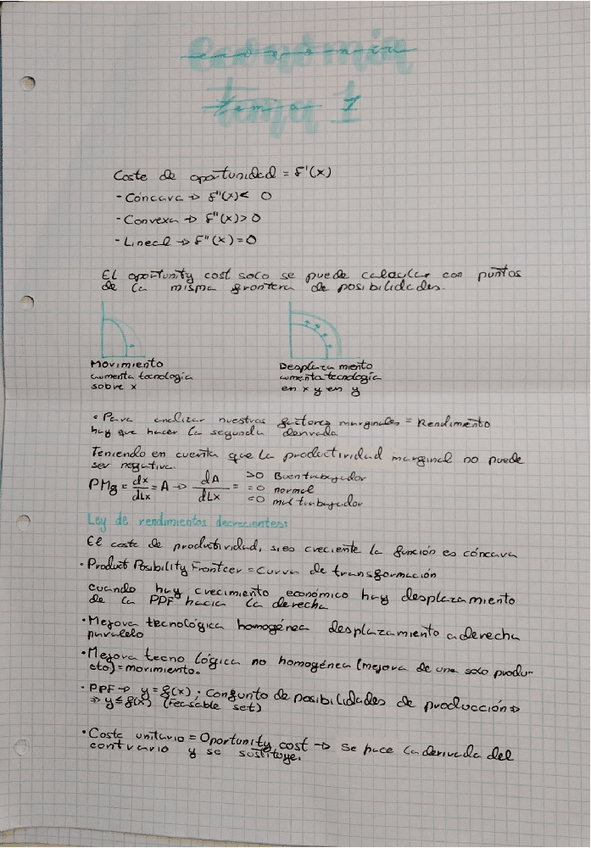 Economía
tema 1
Coste de oportunidad = f'(x)
- Cóncava → f''(x) < 0
- Convexa → f''(x) > 0
- Lineal → f''(x) = 0
El oportunity cost solo se puede calcular con puntos
de la misma frontera de posibilidades.
Movimiento
aumenta tecnología
sobre x
Desplaza miento
aumenta tecnología
en x y en y
• Para analizar nuestros factores marginales = Rendimento
hay que hacer la segunda derivada
Teniendo en cuenta que la productividad marginal no puede
ser negativa.
PMg = dx/dLx = A → dA/dLx = >0 Buen trabajador
=0 normal
=0 mal trabajador
Ley de rendimientos decrecientes:
El coste de productividad, si es creciente la función es cóncava
• Product Posibility Fronteer = Curva de transformación
cuando hay crecimiento económico hay desplazamiento
de la PPF hacia la derecha
• Mejora tecnológica homogénea desplazamiento a derecha
paralelo
• Mejora tecno lógica no homogénea (mejora de una solo produ-
cto) = movimiento.
• PPF → y = f(x) ; Conjunto de posibilidades de producción →
→ y ≤ f(x) (feasable set)
• Coste unitario = Oportunity cost → se hace la derivada del
contrario y se sustituye.